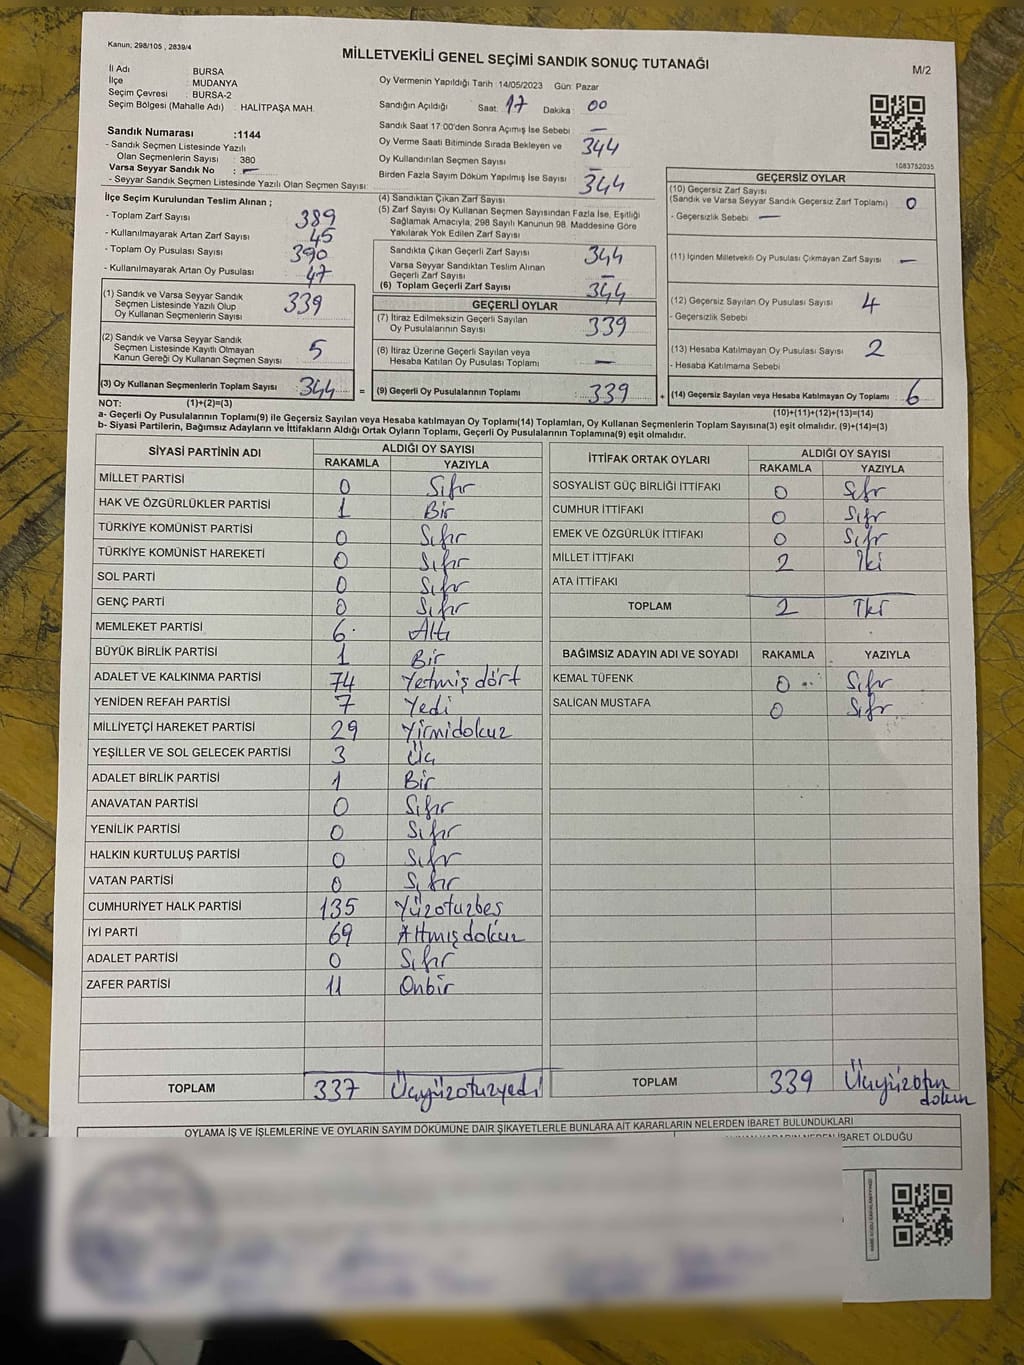 Kanun; 298/105 , 2839/4
MİLLETVEKİLİ GENEL SEÇİMİ SANDIK SONUÇ TUTANAĞI
M/2
İl Adı : BURSA
İlçe : MUDANYA
Seçim Çevresi : BURSA-2
Seçim Bölgesi (Mahalle Adı) : HALİTPAŞA MAH.
Oy Vermenin Yapıldığı Tarih : 14/05/2023 Gün: Pazar
Sandığın Açıldığı Saat: 17 Dakika : 00
Sandık Saat 17:00'den Sonra Açımış İse Sebebi : —
Oy Verme Saati Bitiminde Sırada Bekleyen ve
Oy Kullandırılan Seçmen Sayısı : 344
Birden Fazla Sayım Döküm Yapılmış İse Sayısı : —
Sandık Numarası :1144
- Sandık Seçmen Listesinde Yazılı
Olan Seçmenlerin Sayısı : 380
Varsa Seyyar Sandık No : —
- Seyyar Sandık Seçmen Listesinde Yazılı Olan Seçmen Sayısı:
1083752035
İlçe Seçim Kurulundan Teslim Alınan ;
- Toplam Zarf Sayısı : 389
- Kullanılmayarak Artan Zarf Sayısı : 45
- Toplam Oy Pusulası Sayısı : 390
- Kullanılmayarak Artan Oy Pusulası : 47
(1) Sandık ve Varsa Seyyar Sandık
Seçmen Listesinde Yazılı Olup
Oy Kullanan Seçmenlerin Sayısı : 339
(2) Sandık ve Varsa Seyyar Sandık
Seçmen Listesinde Kayıtlı Olmayan
Kanun Gereği Oy Kullanan Seçmen Sayısı : 5
(3) Oy Kullanan Seçmenlerin Toplam Sayısı : 344 =
(4) Sandıktan Çıkan Zarf Sayısı : 344
(5) Zarf Sayısı Oy Kullanan Seçmen Sayısından Fazla İse, Eşitliği
Sağlamak Amacıyla; 298 Sayılı Kanunun 98. Maddesine Göre
Yakılarak Yok Edilen Zarf Sayısı
Sandıkta Çıkan Geçerli Zarf Sayısı : 344
Varsa Seyyar Sandıktan Teslim Alınan
Geçerli Zarf Sayısı : —
(6) Toplam Geçerli Zarf Sayısı : 344
GEÇERLİ OYLAR
(7) İtiraz Edilmeksizin Geçerli Sayılan
Oy Pusulalarının Sayısı : 339
(8) İtiraz Üzerine Geçerli Sayılan veya
Hesaba Katılan Oy Pusulası Toplamı : —
(9) Geçerli Oy Pusulalarının Toplamı : 339 +
GEÇERSİZ OYLAR
(10) Geçersiz Zarf Sayısı
(Sandık ve Varsa Seyyar Sandık Geçersiz Zarf Toplamı) : 0
- Geçersizlik Sebebi : —
(11) İçinden Milletvekili Oy Pusulası Çıkmayan Zarf Sayısı : —
(12) Geçersiz Sayılan Oy Pusulası Sayısı : 4
- Geçersizlik Sebebi :
(13) Hesaba Katılmayan Oy Pusulası Sayısı : 2
- Hesaba Katılmama Sebebi :
(14) Geçersiz Sayılan veya Hesaba Katılmayan Oy Toplamı : 6
NOT: (1)+(2)=(3)
(10)+(11)+(12)+(13)=(14)
a- Geçerli Oy Pusulalarının Toplamı(9) ile Geçersiz Sayılan veya Hesaba katılmayan Oy Toplamı(14) Toplamları, Oy Kullanan Seçmenlerin Toplam Sayısına(3) eşit olmalıdır. (9)+(14)=(3)
b- Siyasi Partilerin, Bağımsız Adayların ve İttifakların Aldığı Ortak Oyların Toplamı, Geçerli Oy Pusulalarının Toplamına(9) eşit olmalıdır.
SİYASİ PARTİNİN ADI ALDIĞI OY SAYISI
RAKAMLA YAZIYLA
MİLLET PARTİSİ 0 Sıfır
HAK VE ÖZGÜRLÜKLER PARTİSİ 1 Bir
TÜRKİYE KOMÜNİST PARTİSİ 0 Sıfır
TÜRKİYE KOMÜNİST HAREKETİ 0 Sıfır
SOL PARTİ 0 Sıfır
GENÇ PARTİ 0 Sıfır
MEMLEKET PARTİSİ 6 Altı
BÜYÜK BİRLİK PARTİSİ 1 Bir
ADALET VE KALKINMA PARTİSİ 74 Yetmiş dört
YENİDEN REFAH PARTİSİ 7 Yedi
MİLLİYETÇİ HAREKET PARTİSİ 29 Yirmidokuz
YEŞİLLER VE SOL GELECEK PARTİSİ 3 Üç
ADALET BİRLİK PARTİSİ 1 Bir
ANAVATAN PARTİSİ 0 Sıfır
YENİLİK PARTİSİ 0 Sıfır
HALKIN KURTULUŞ PARTİSİ 0 Sıfır
VATAN PARTİSİ 0 Sıfır
CUMHURİYET HALK PARTİSİ 135 Yüzotuzbeş
İYİ PARTİ 69 Altmış dokuz
ADALET PARTİSİ 0 Sıfır
ZAFER PARTİSİ 11 Onbir
TOPLAM 337 Üçyüzotuzyedi
İTTİFAK ORTAK OYLARI ALDIĞI OY SAYISI
RAKAMLA YAZIYLA
SOSYALİST GÜÇ BİRLİĞİ İTTİFAKI 0 Sıfır
CUMHUR İTTİFAKI 0 Sıfır
EMEK VE ÖZGÜRLÜK İTTİFAKI 0 Sıfır
MİLLET İTTİFAKI 2 İki
ATA İTTİFAKI
TOPLAM 2 İki
BAĞIMSIZ ADAYIN ADI VE SOYADI RAKAMLA YAZIYLA
KEMAL TÜFENK 0 Sıfır
SALİCAN MUSTAFA 0 Sıfır
TOPLAM 339
OYLAMA İŞ VE İŞLEMLERİNE VE OYLARIN SAYIM DÖKÜMÜNE DAİR ŞİKAYETLERLE BUNLARA AİT KARARLARIN NELERDEN İBARET BULUNDUKLARI
İBARET OLDUĞU